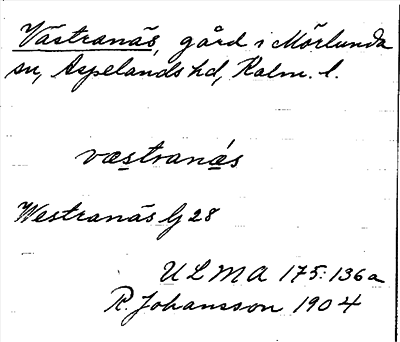 Västranäs, gård i Mörlunda
sn, Aspelands hd, Kalm. l.
væstranǽs
Westranäs G 28
ULMA 175:136a
R. Johansson 1904